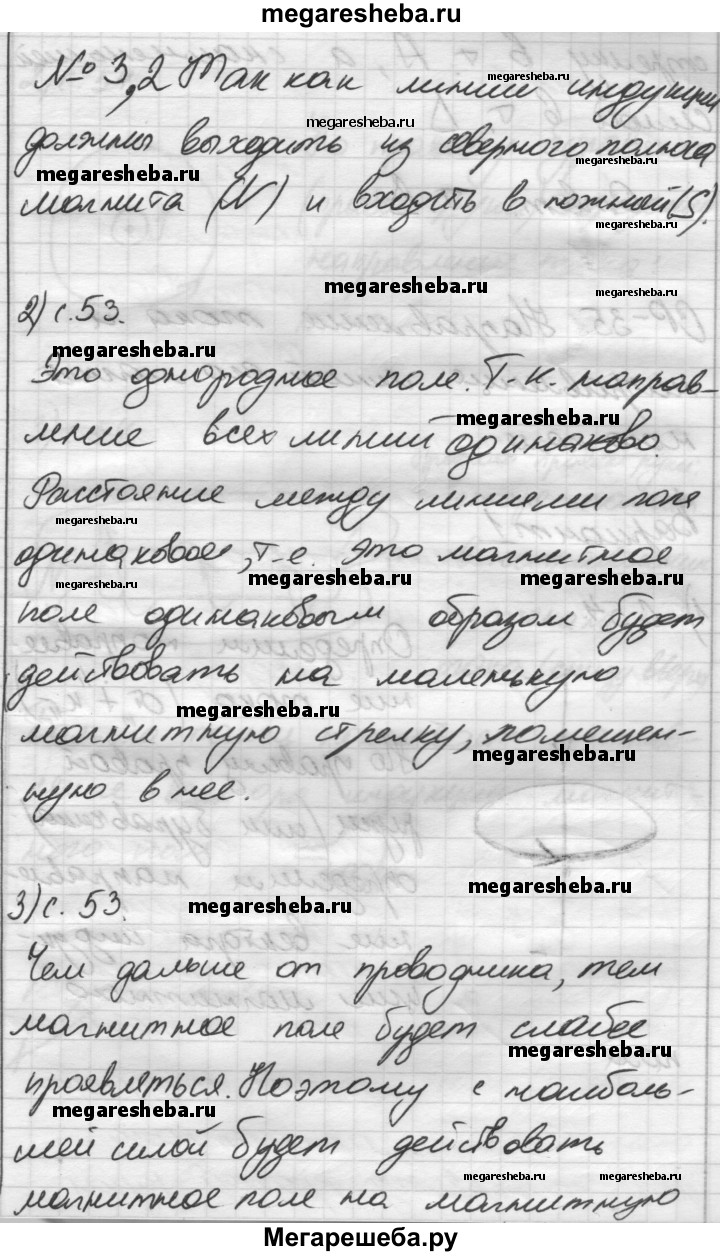 megaresheba.ru
№ 3,2 Так как линии индукции
megaresheba.ru
megaresheba.ru
должны выходить из северного полюса
megaresheba.ru
megaresheba.ru
магнита (N) и входить в южный (S).
megaresheba.ru
megaresheba.ru
megaresheba.ru
2) с. 53.
megaresheba.ru
Это однородное поле. Т.к. направ-
megaresheba.ru
ление всех линий одинаково.
Расстояние между линиями поля
megaresheba.ru
одинаковое, т.е. это магнитное
megaresheba.ru
megaresheba.ru
megaresheba.ru
поле одинаковым образом будет
действовать на маленькую
megaresheba.ru
магнитную стрелку, помещен-
megaresheba.ru
ную в нее.
megaresheba.ru
3) с. 53.
megaresheba.ru
Чем дальше от проводника, тем
магнитное поле будет слабее
megaresheba.ru
проявляться. Поэтому с наиболь-
megaresheba.ru
шей силой будет действовать
megaresheba.ru
megaresheba.ru
магнитное поле на магнитную
Мегарешеба.ру